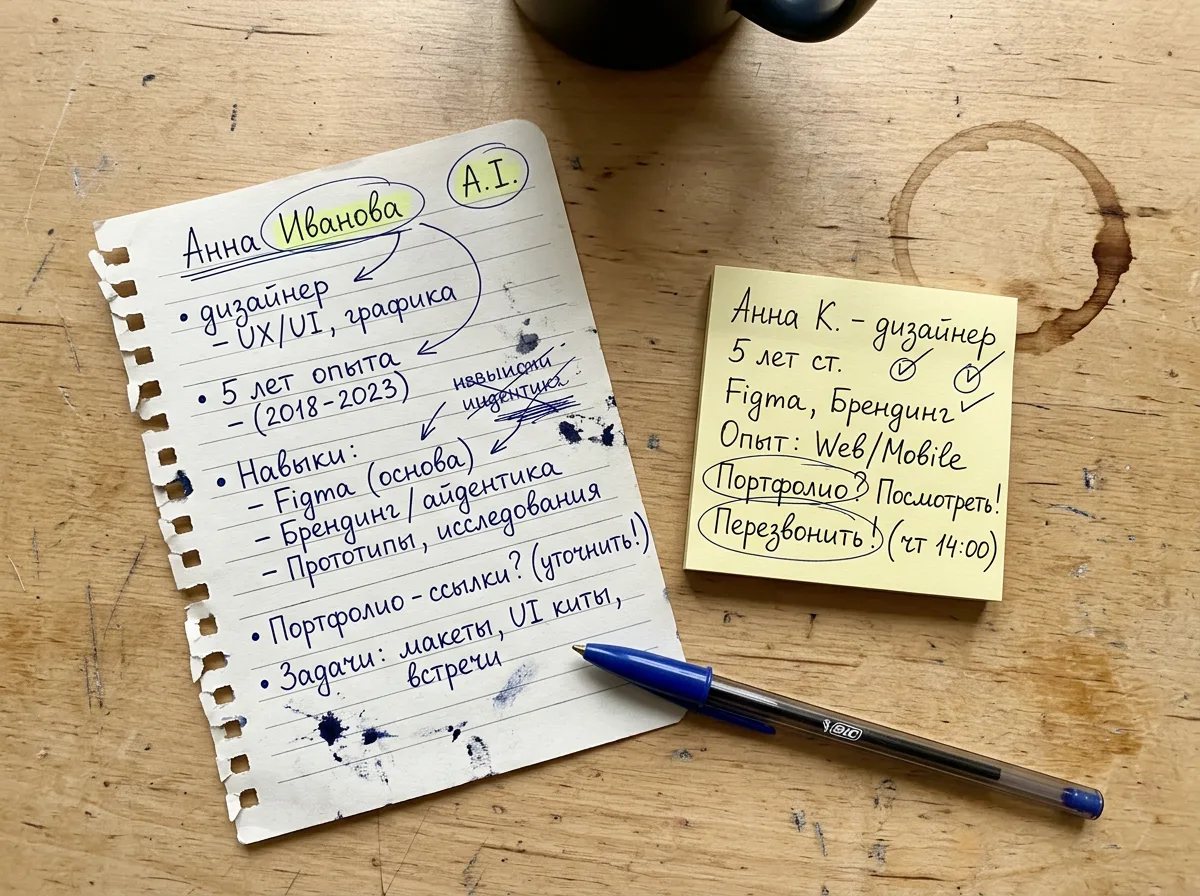 Анна Иванова
A.I.
• дизайнер
– UX/UI, графика
• 5 лет опыта
– (2018-2023)
• Навыки:
– Figma (основа)
– Брендинг/айдентика
– Прототипы, исследования
• Портфолио – ссылки? (уточнить!)
• Задачи: макеты, UI киты,
встречи
Анна К. – дизайнер
5 лет ст.
Figma, Брендинг ✓
Опыт: Web/Mobile
Портфолио? Посмотреть!
Перезвонить! (чт 14:00)
BIC